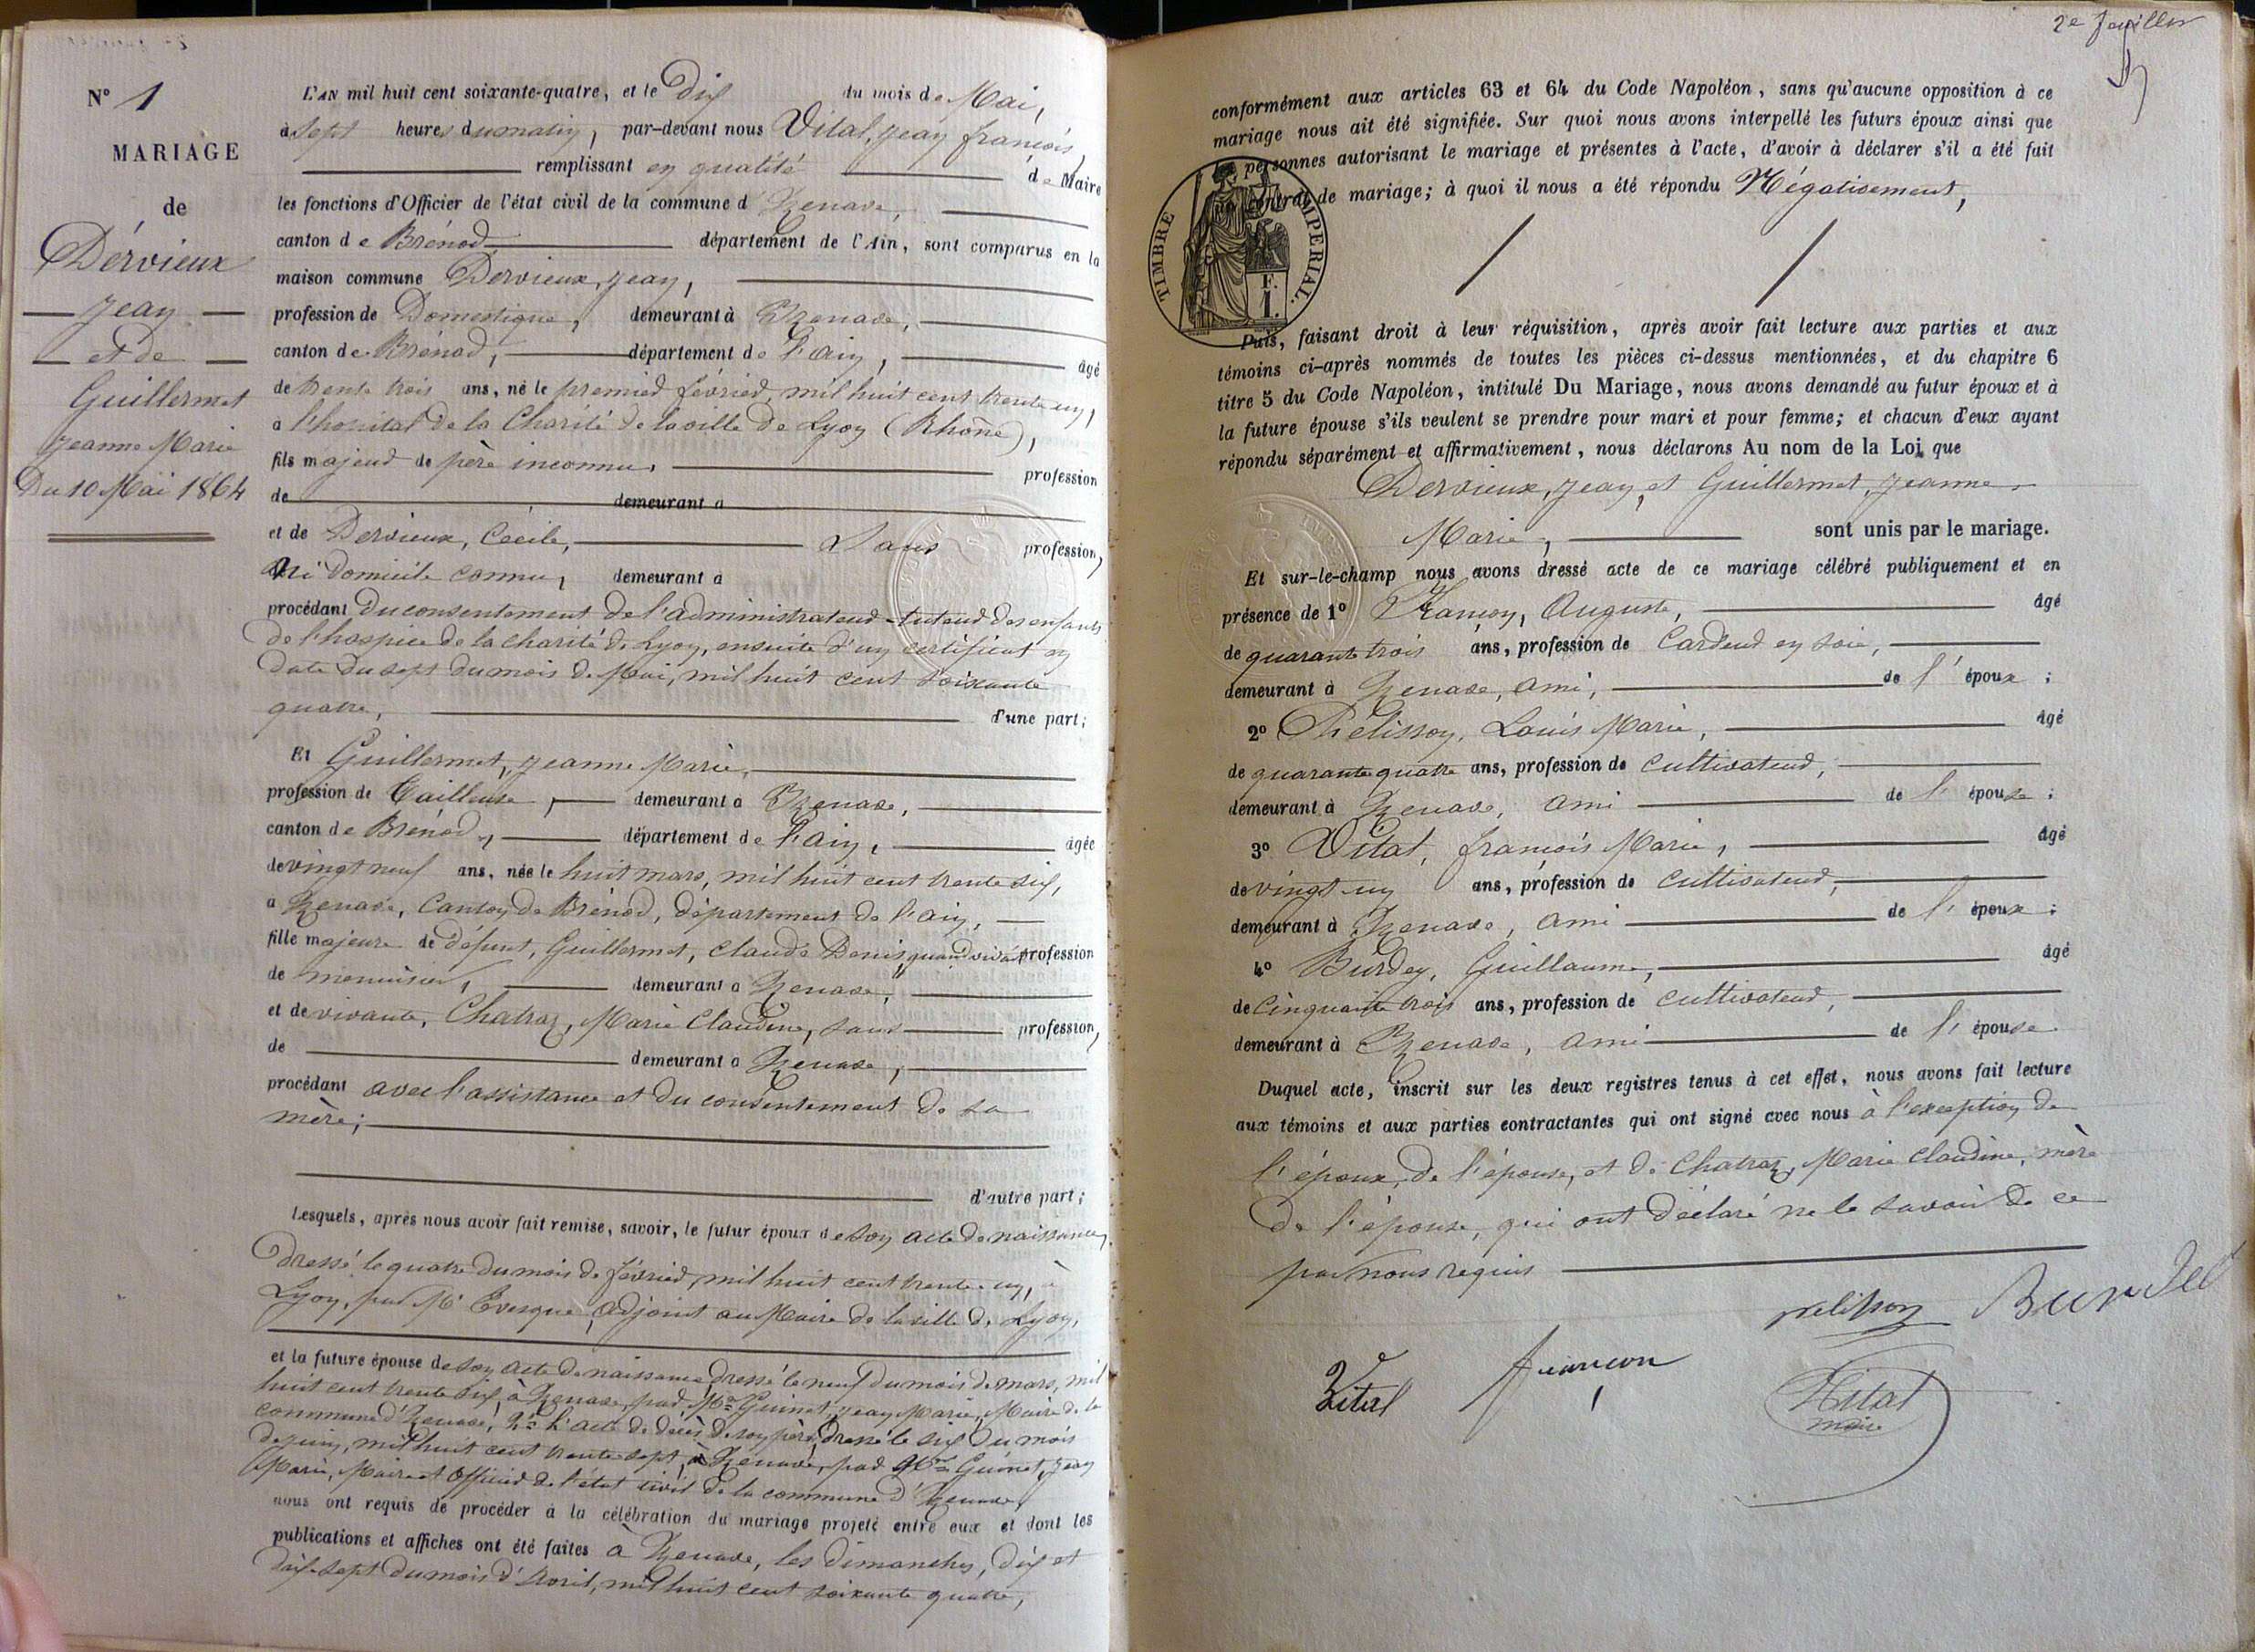 N° 1
MARIAGE
de
Dérvieux
Jean
et de
Guillermet
Jeanne Marie
Du 10 Mai 1864
L'AN mil huit cent soixante-quatre, et le Dix du mois de Mai,
à sept heures du matin, par-devant nous Vital, Jean françois,
remplissant en qualité de Maire
les fonctions d'Officier de l'état civil de la commune d'Izenave,
canton de Brénod département de l'Ain, sont comparus en la
maison commune Dervieux, Jean,
profession de Domestique, demeurant à Izenave,
canton de Brénod, département de l'ain, âgé
de trente trois ans, né le premier février, mil huit cent trente un,
a l'hopital de la Charité de la ville de Lyon (Rhône),
fils majeur de père inconnu, profession
de demeurant a
et de Dervieux, Cécile, Sans profession,
Ni domicile connu, demeurant a
procédant du consentement de l'administrateur-tuteur des enfants
de l'hospice de la charité de Lyon, ensuite d'un certificat en
date du sept du mois de Mai, mil huit cent soixante
quatre, d'une part;
Et Guillermet, Jeanne Marie,
profession de Tailleuse, demeurant a Izenave,
canton de Brénod, département de l'ain, âgée
de vingt neuf ans, née le huit mars, mil huit cent trente six,
a Izenave, Canton de Brénod, département de l'ain,
fille majeure de défunt, Guillermet, Claude Denis, quand vivait profession
de menuisier, demeurant a Izenave,
et de vivante, Chatraz, Marie Claudine, sans profession,
de demeurant a Izenave,
procédant avec l'assistance et du consentement de sa
mère;
d'autre part;
Lesquels, après nous avoir fait remise, savoir, le futur époux de son acte de naissance,
dressé le quatre du mois de février, mil huit cent trente-un, à
Lyon, par Mr Evesque, adjoint au Maire de la ville de Lyon,
et la future épouse de son acte de naissance dressé le neuf du mois de mars, mil
huit cent trente six, à Izenave, par Mr Guinet, Jean Marie, Maire de la
commune d'Izenave, 2° l'acte de décès de son père, dressé le six du mois
de juin, mil huit cent trente sept, à Izenave, par Mr Guinet, Jean
Marie, Maire et Officier de l'état civil de la commune d'Izenave,
nous ont requis de procéder à la célébration du mariage projeté entre eux et dont les
publications et affiches ont été faites à Izenave, les dimanches, dix et
dix-sept du mois d'Avril, mil huit cent soixante quatre,
2e feuillet
conformément aux articles 63 et 64 du Code Napoléon, sans qu'aucune opposition à ce
mariage nous ait été signifiée. Sur quoi nous avons interpellé les futurs époux ainsi que
les personnes autorisant le mariage et présentes à l'acte, d'avoir à déclarer s'il a été fait
contrat de mariage; à quoi il nous a été répondu Négativement,
TIMBRE IMPERIAL.
F.
1.
Puis, faisant droit à leur réquisition, après avoir fait lecture aux parties et aux
témoins ci-après nommés de toutes les pièces ci-dessus mentionnées, et du chapitre 6
titre 5 du Code Napoléon, intitulé Du Mariage, nous avons demandé au futur époux et à
la future épouse s'ils veulent se prendre pour mari et pour femme; et chacun d'eux ayant
répondu séparément et affirmativement, nous déclarons Au nom de la Loi que
Dervieux, Jean, et Guillermet, Jeanne
Marie, sont unis par le mariage.
Et sur-le-champ nous avons dressé acte de ce mariage célébré publiquement et en
présence de 1° Françon, Auguste, âgé
de quarante trois ans, profession de Cardeur en soie,
demeurant à Izenave, ami, de l'époux;
2° Pélisson, Louis Marie, âgé
de quarante quatre ans, profession de cultivateur,
demeurant à Izenave, ami de l'épouse;
3° Vital, françois Marie, âgé
de vingt-un ans, profession de cultivateur,
demeurant à Izenave, ami de l'époux;
4° Burdey, Guillaume, âgé
de Cinquante trois ans, profession de cultivateur,
demeurant à Izenave, ami de l'épouse
Duquel acte, inscrit sur les deux registres tenus à cet effet, nous avons fait lecture
aux témoins et aux parties contractantes qui ont signé avec nous à l'exception de
l'époux, de l'épouse, et de Chatraz, Marie Claudine, mère
de l'épouse, qui ont déclaré ne le savoir de ce
par nous requis
pelisson Burdel
Vital françon Vital
maire